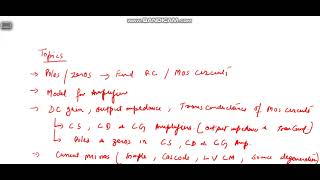 WWW.BANDICAM.COM
Topics
→ Poles / zeros → Find RC / Mos circuits
→ Model for Amplifiers
→ DC gain, output impedance, Transconductance of Mos circuits
↳ CS, CD & CG Amplifiers (output impedance &
↳ Poles & zeros in CS, CD & CG Amp.
→ Current mirrors (Simple, Cascode, LV CM, Source degeneration)